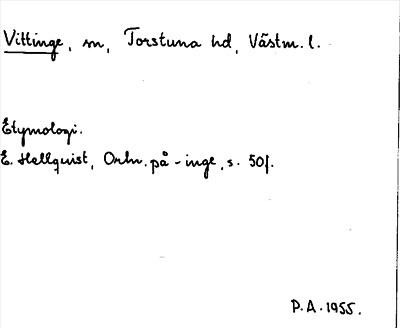 Vittinge, sn, Torstuna hd, Västm. l.
Etymologi.
E. Hellquist, Ortn. på -inge, s. 50f.
P.A. 1955.